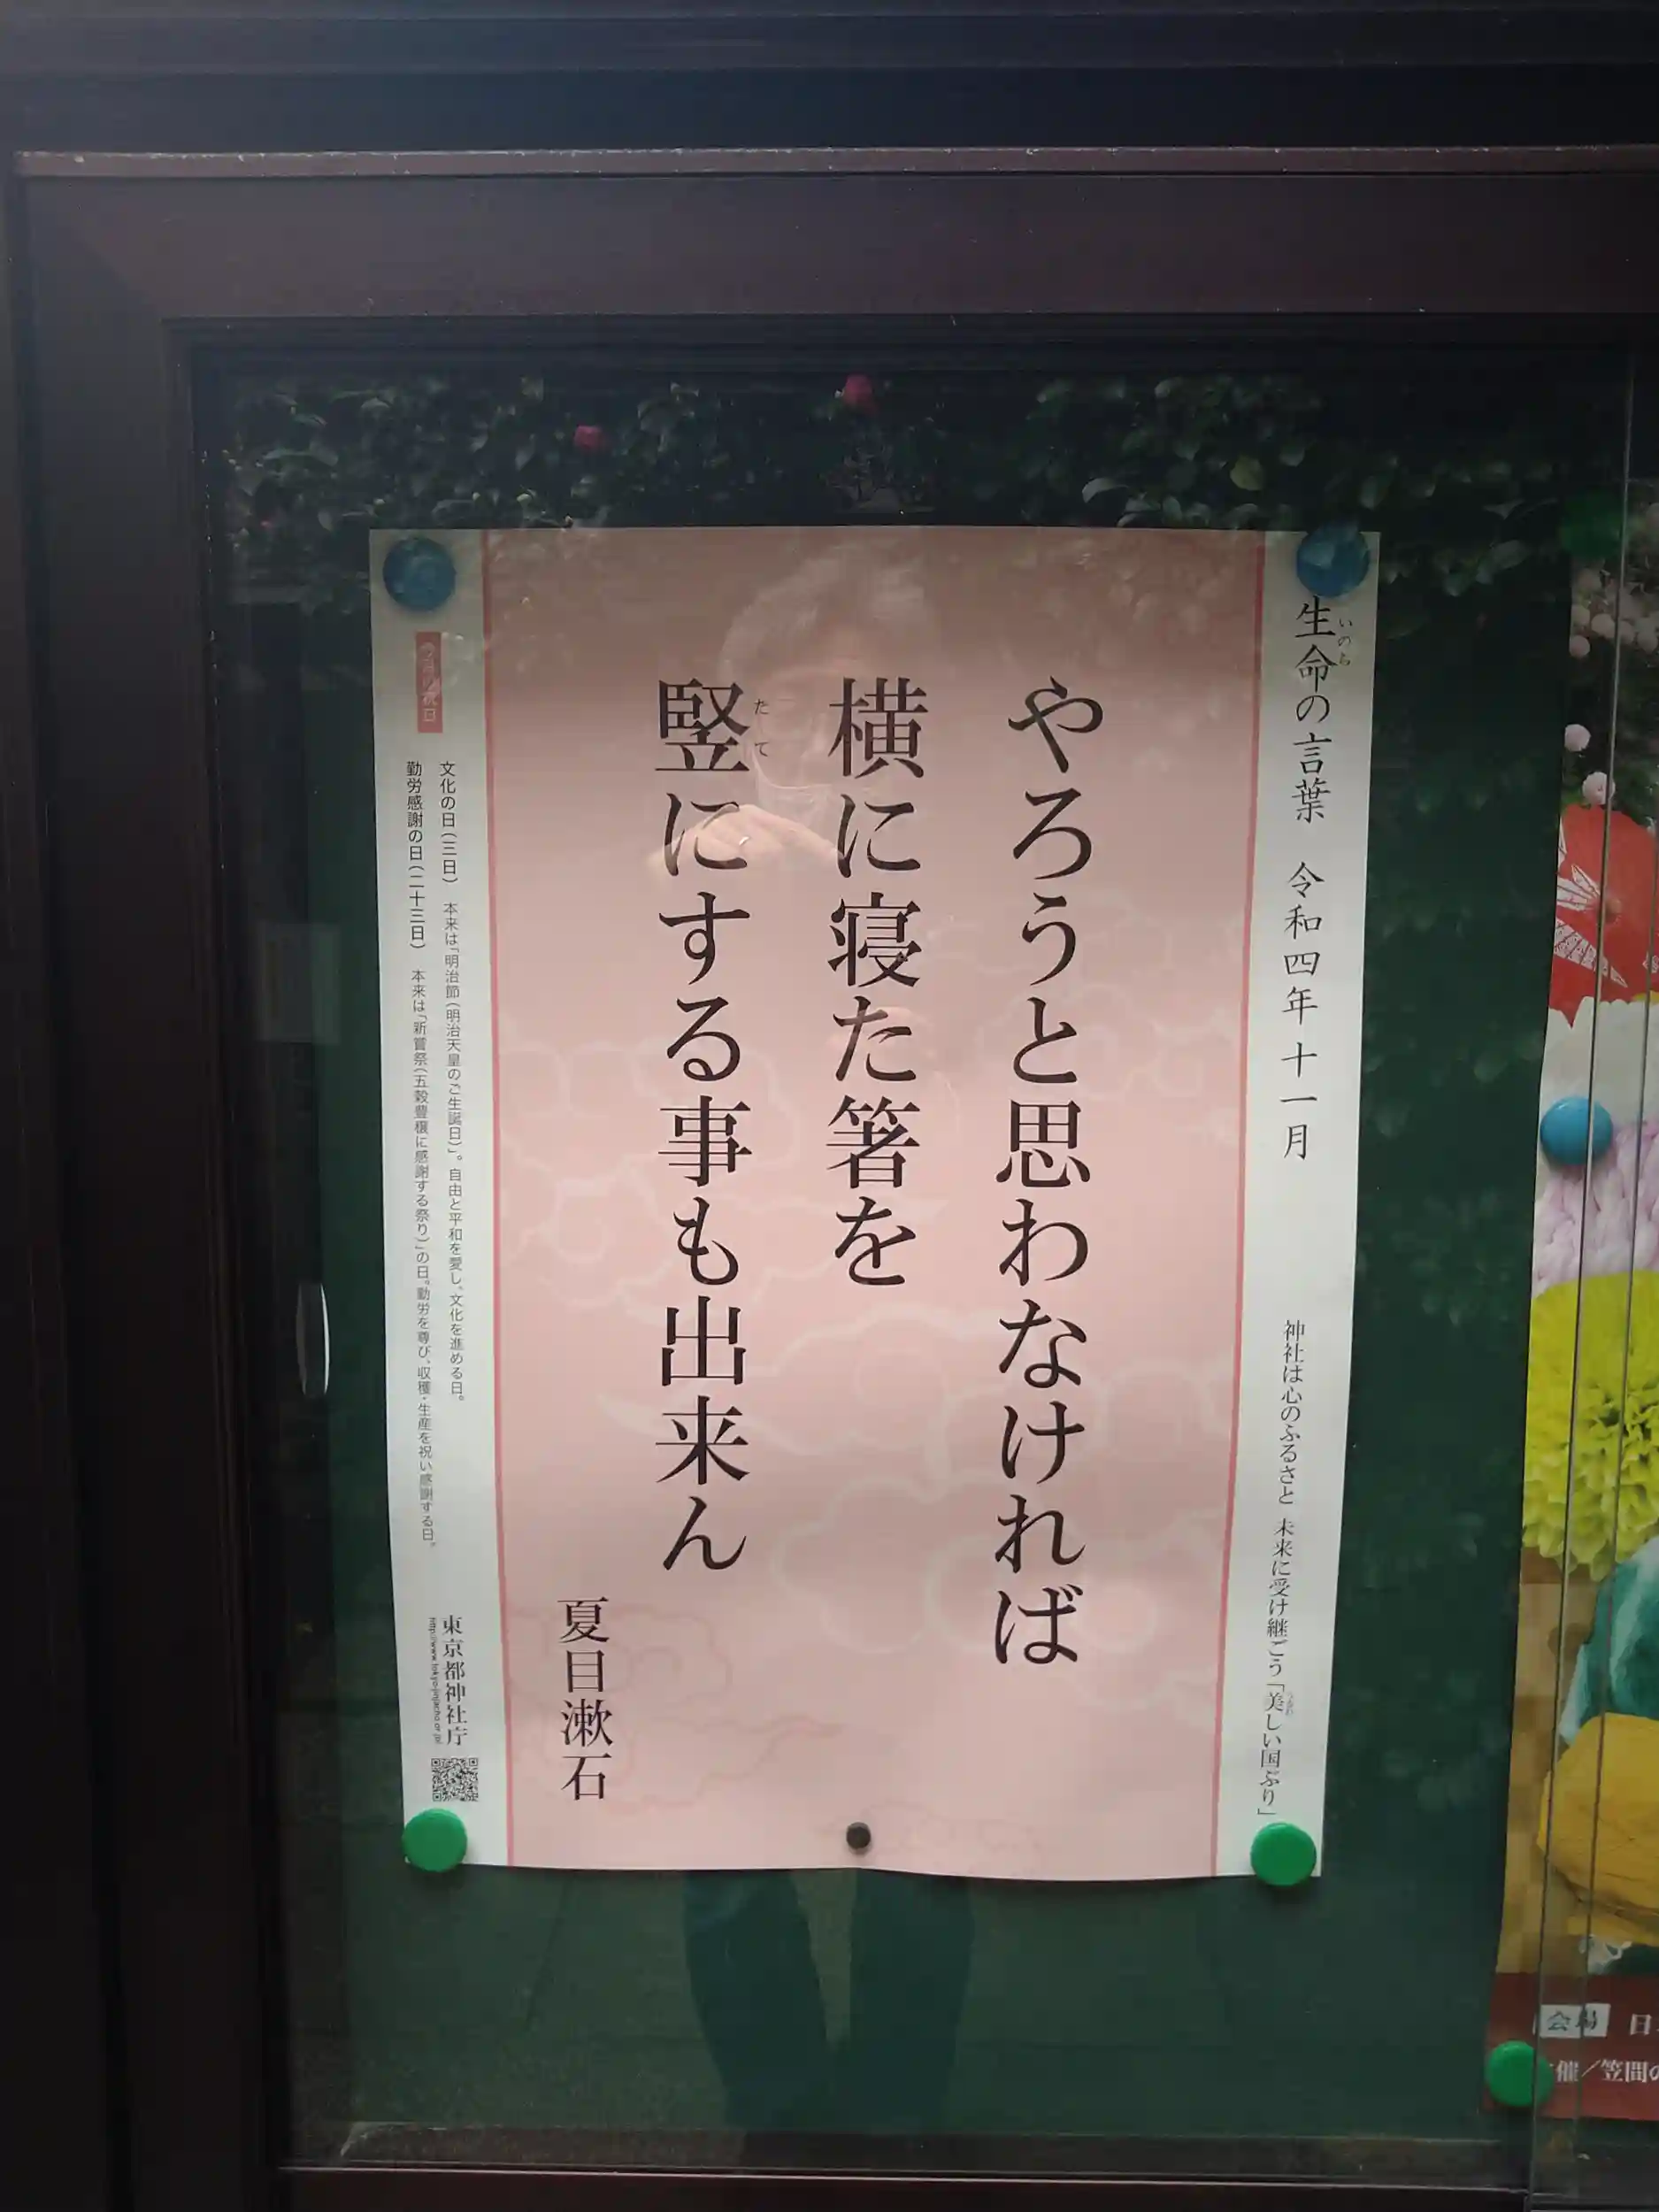 生命の言葉 令和四年十一月
いのち
神社は心のふるさと 未来に受け継ごう「美しい国ぶり」
やろうと思わなければ
横に寝た箸を
竪にする事も出来ん
たて
夏目漱石
今月の祝日
文化の日(三日) 本来は「明治節(明治天皇のご生誕日)」。自由と平和を愛し、文化を進める日。
勤労感謝の日(二十三日) 本来は「新嘗祭(五穀豊穣に感謝する祭り)」の日。勤労を尊び、収穫・生産を祝い感謝する日。
東京都神社庁
会場 日
催/笠間の